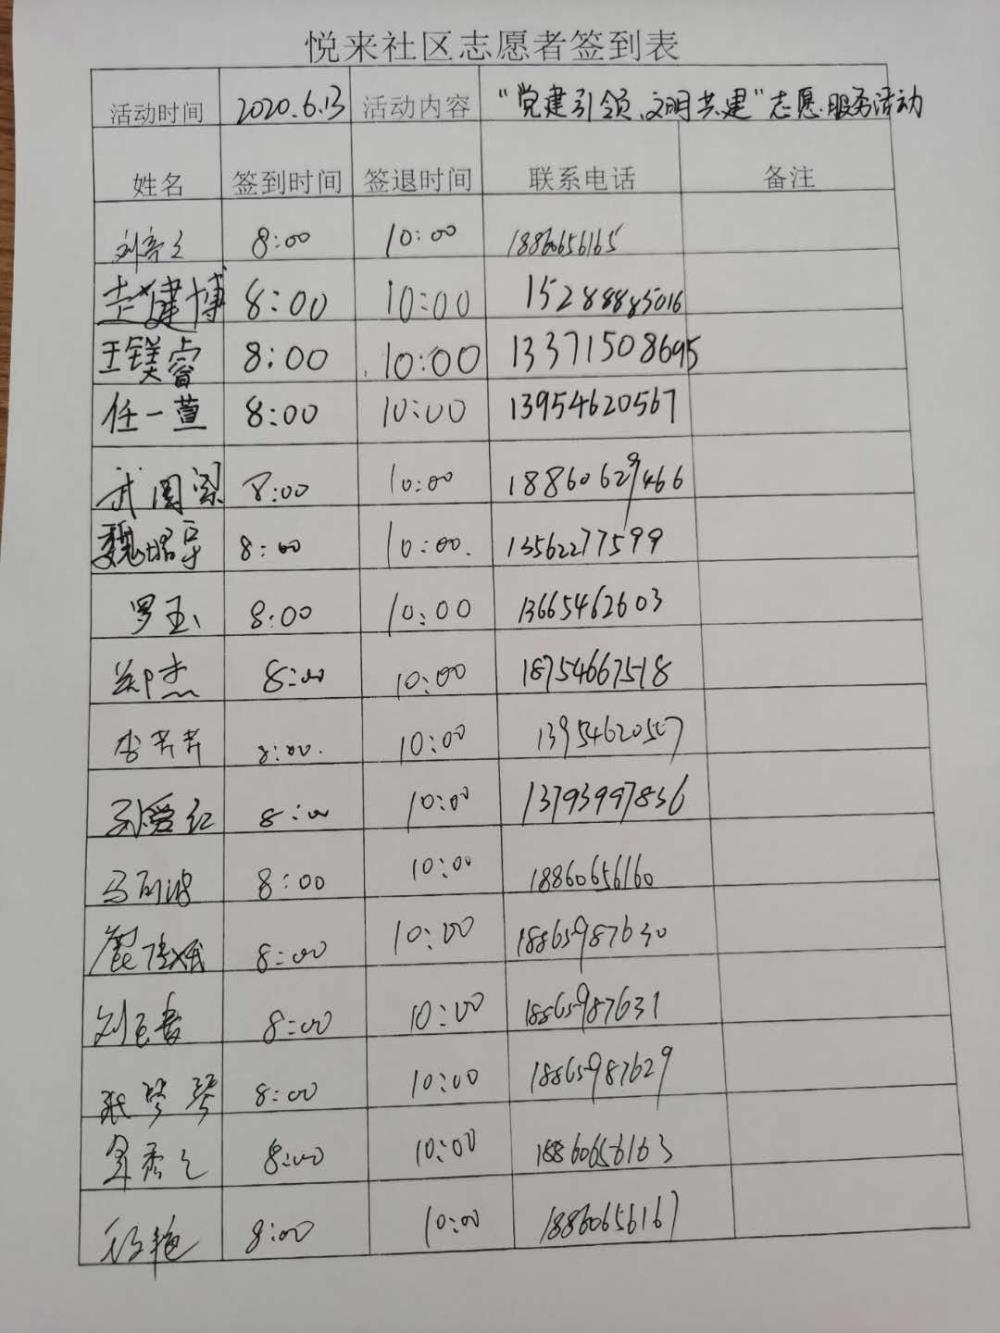 悦来社区志愿者签到表
活动时间 2020.6.13 活动内容 “党建引领、文明共建”志愿服务活动
姓名 签到时间 签退时间 联系电话 备注
8:00 10:00 18860656165
赵建博 8:00 10:00 15288885016
王镁睿 8:00 10:00 13371508695
任一萱 8:00 10:00 13954620567
武周梁 8:00 10:00 18860629466
魏 8:00 10:00. 13562277599
罗玉 8:00 10:00 13665462603
郑杰 8:00 10:00 18754667518
李芳芳 8:00. 10:00 13954620507
孙爱红 8:00 10:00 13793997836
马 8:00 10:00 18860656160
8:00 10:00 18865987630
刘 8:00 10:00 18865987631
张琴琴 8:00 10:00 18865987629
8:00 10:00 18860656163
8:00 10:00 18860656167